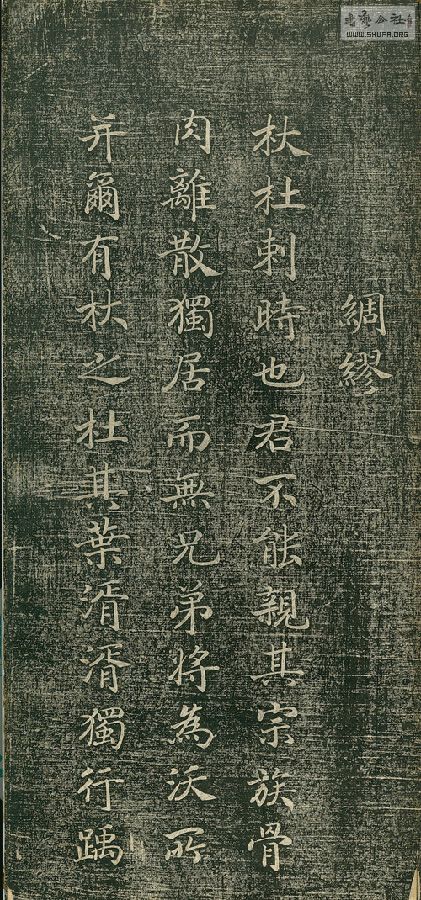 綢繆
杕杜刺時也君不能親其宗族骨
肉離散獨居而無兄弟將為沃所
并爾有杕之杜其葉湑湑獨行踽
書法公社
WWW.SHUFA.ORG